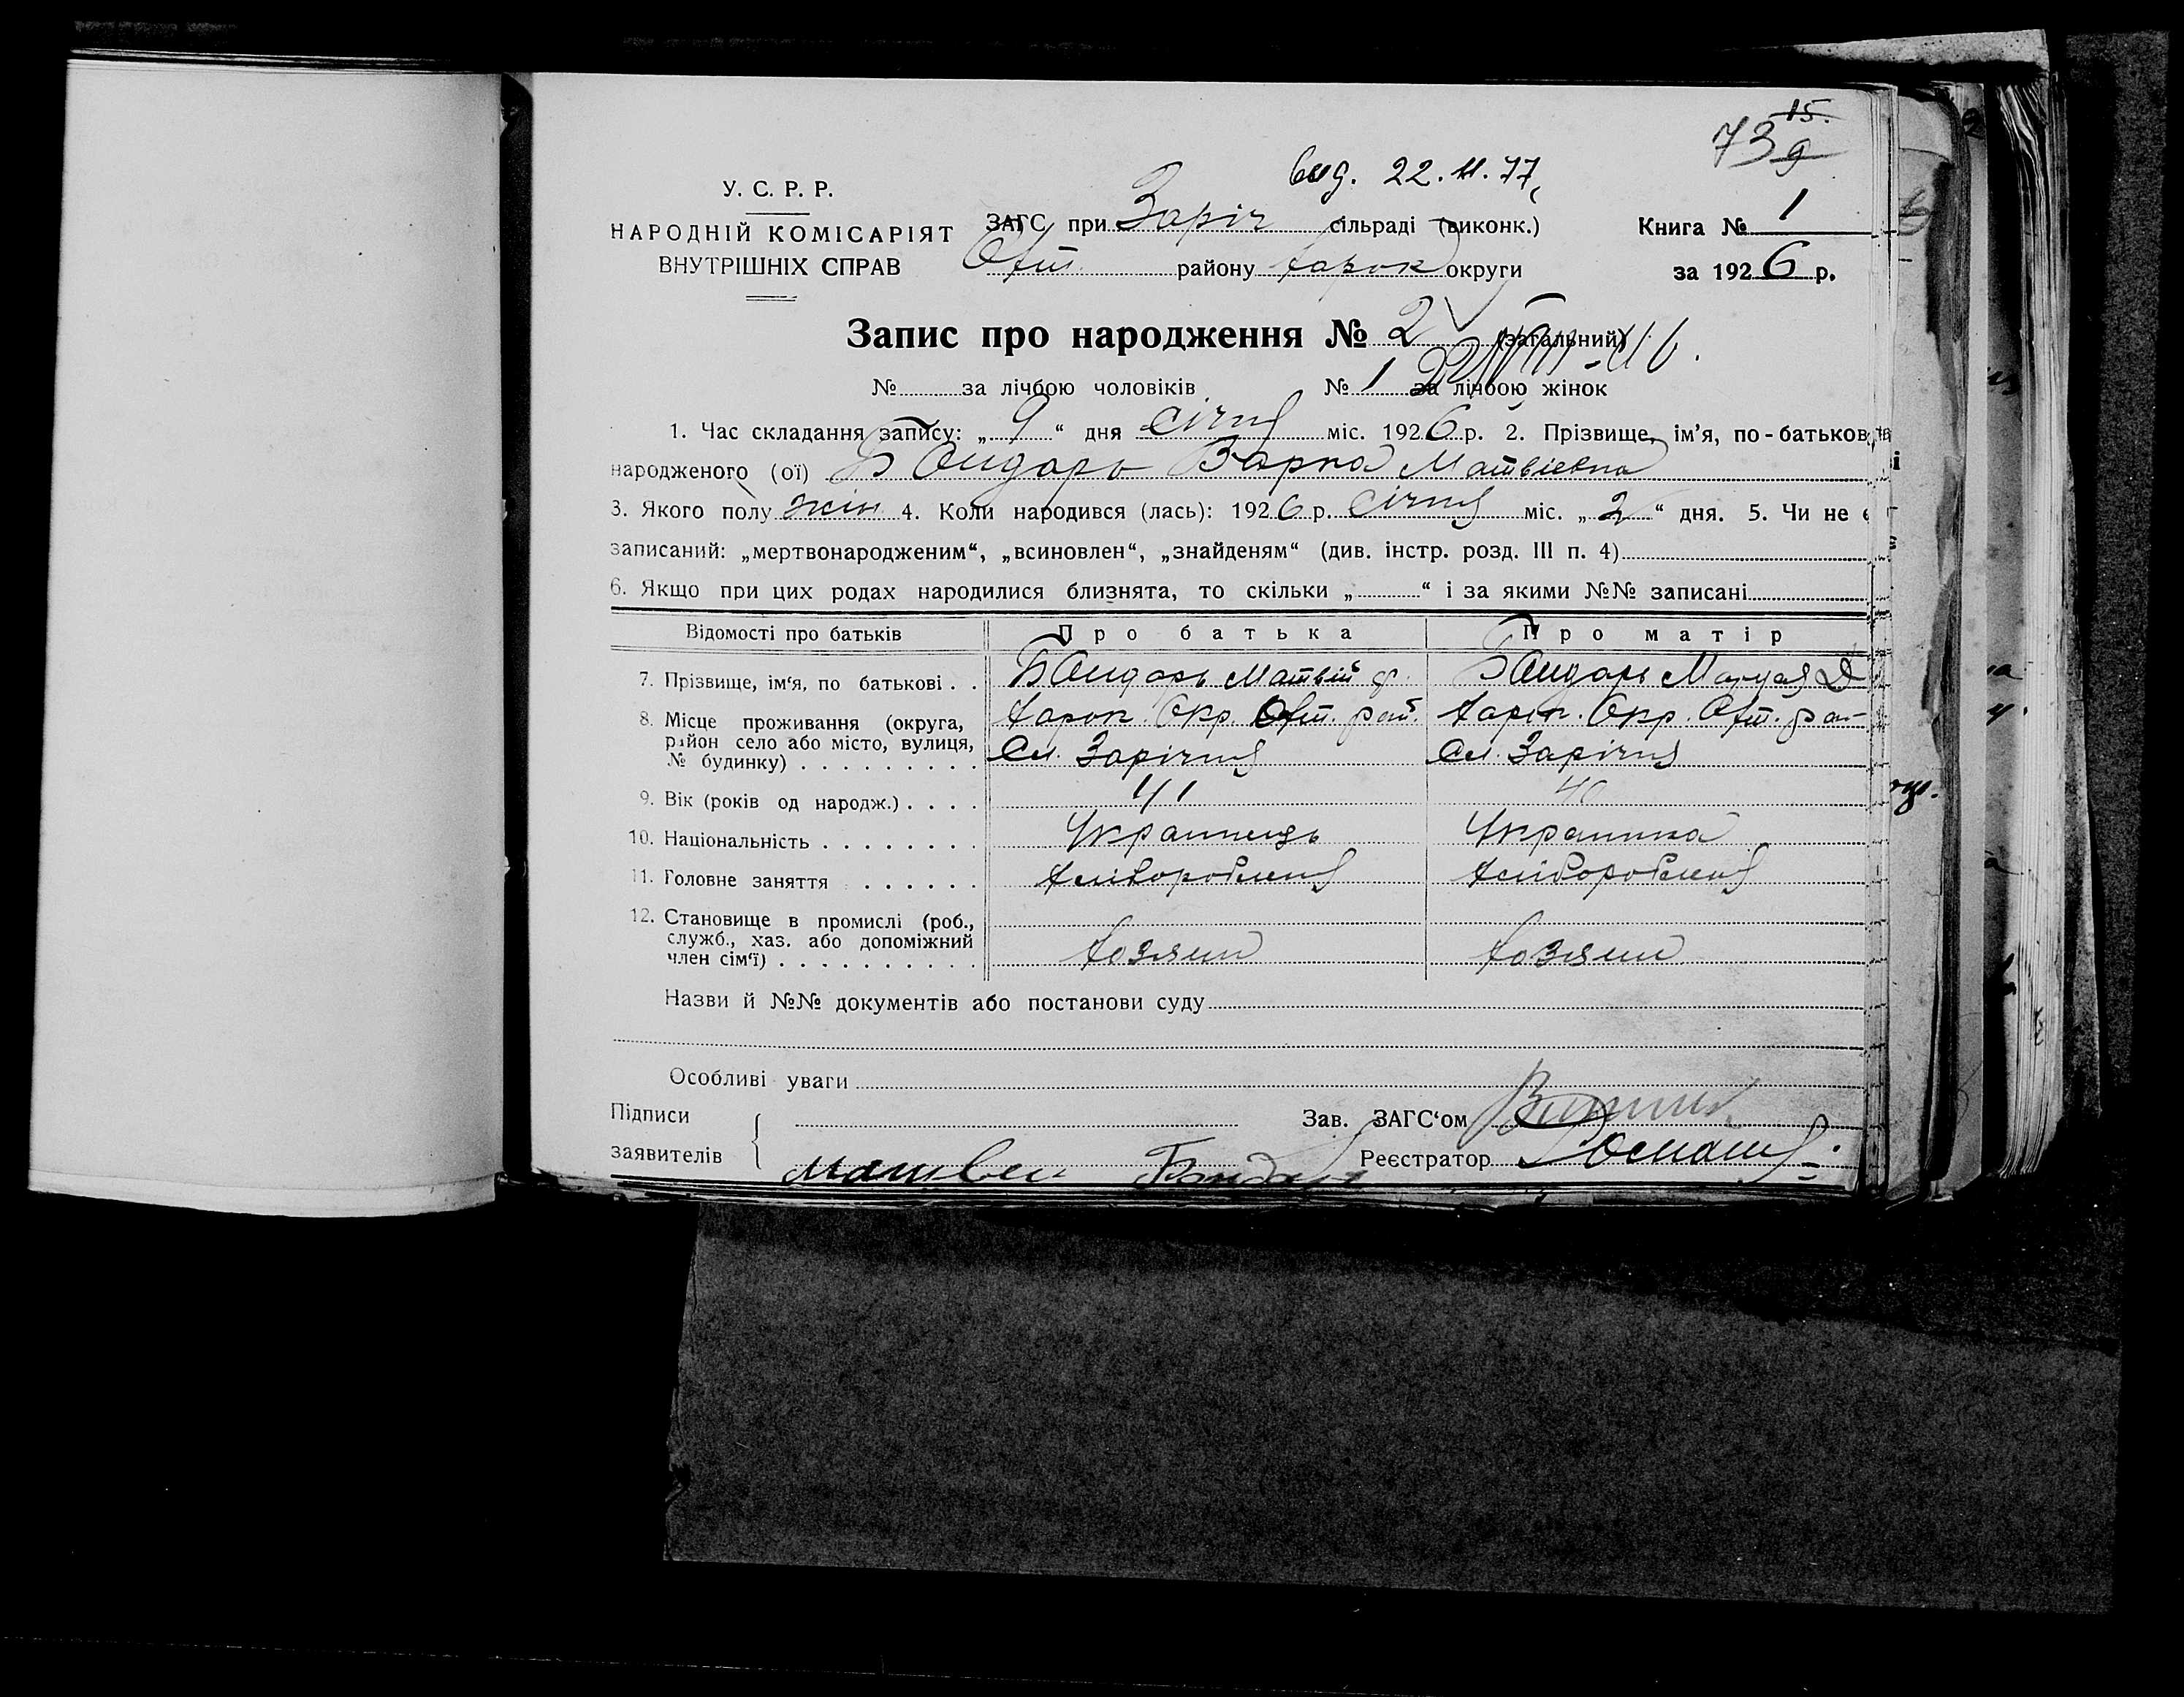 15.
73 9
вид. 22.11.77
У. С. Р. Р.
НАРОДНІЙ КОМІСАРІЯТ
ВНУТРІШНІХ СПРАВ
ЗАГС при Заріч сільраді (виконк.)
Охт. району Харок округи
Книга № 1
за 1926 р.
Запис про народження № 2 (загальний)
№ за лічбою чоловіків № 1 за лічбою жінок
1. Час складання запису: „9“ дня січня міс. 1926 р. 2. Прізвище, ім’я, по-батьков
народженого (ої) Бондарь Варка Матвіевна
3. Якого полу жін 4. Коли народився (лась): 1926 р. січня міс. „2“ дня. 5. Чи не є
записаний: „мертвонародженим“, „всиновлен“, „знайденям“ (див. інстр. розд. III п. 4)
6. Якщо при цих родах народилися близнята, то скільки „ “ і за якими №№ записані
Відомості про батьків Про батька Про матір
7. Прізвище, ім‘я, по батькові . . Бондарь Матвій Бондарь
8. Місце проживання (округа, Харок. Окр. Охт. рай. Харок. Окр. Охт. рай
район село або місто, вулиця, Сл. Зарічня Сл. Зарічня
№ будинку)
9. Вік (років од народж.) . . . . 41 40
10. Національність Украинець Украинка
11. Головне заняття Хліборобленя Хліборобленя
12. Становище в промислі (роб.,
служб., хаз. або допоміжний Хозяин Хозяин
член сім‘ї)
Назви й №№ документів або постанови суду
Особливі уваги
Підписи
заявителів
Зав. ЗАГС‘ом
Реєстратор
Матвеи Бондар